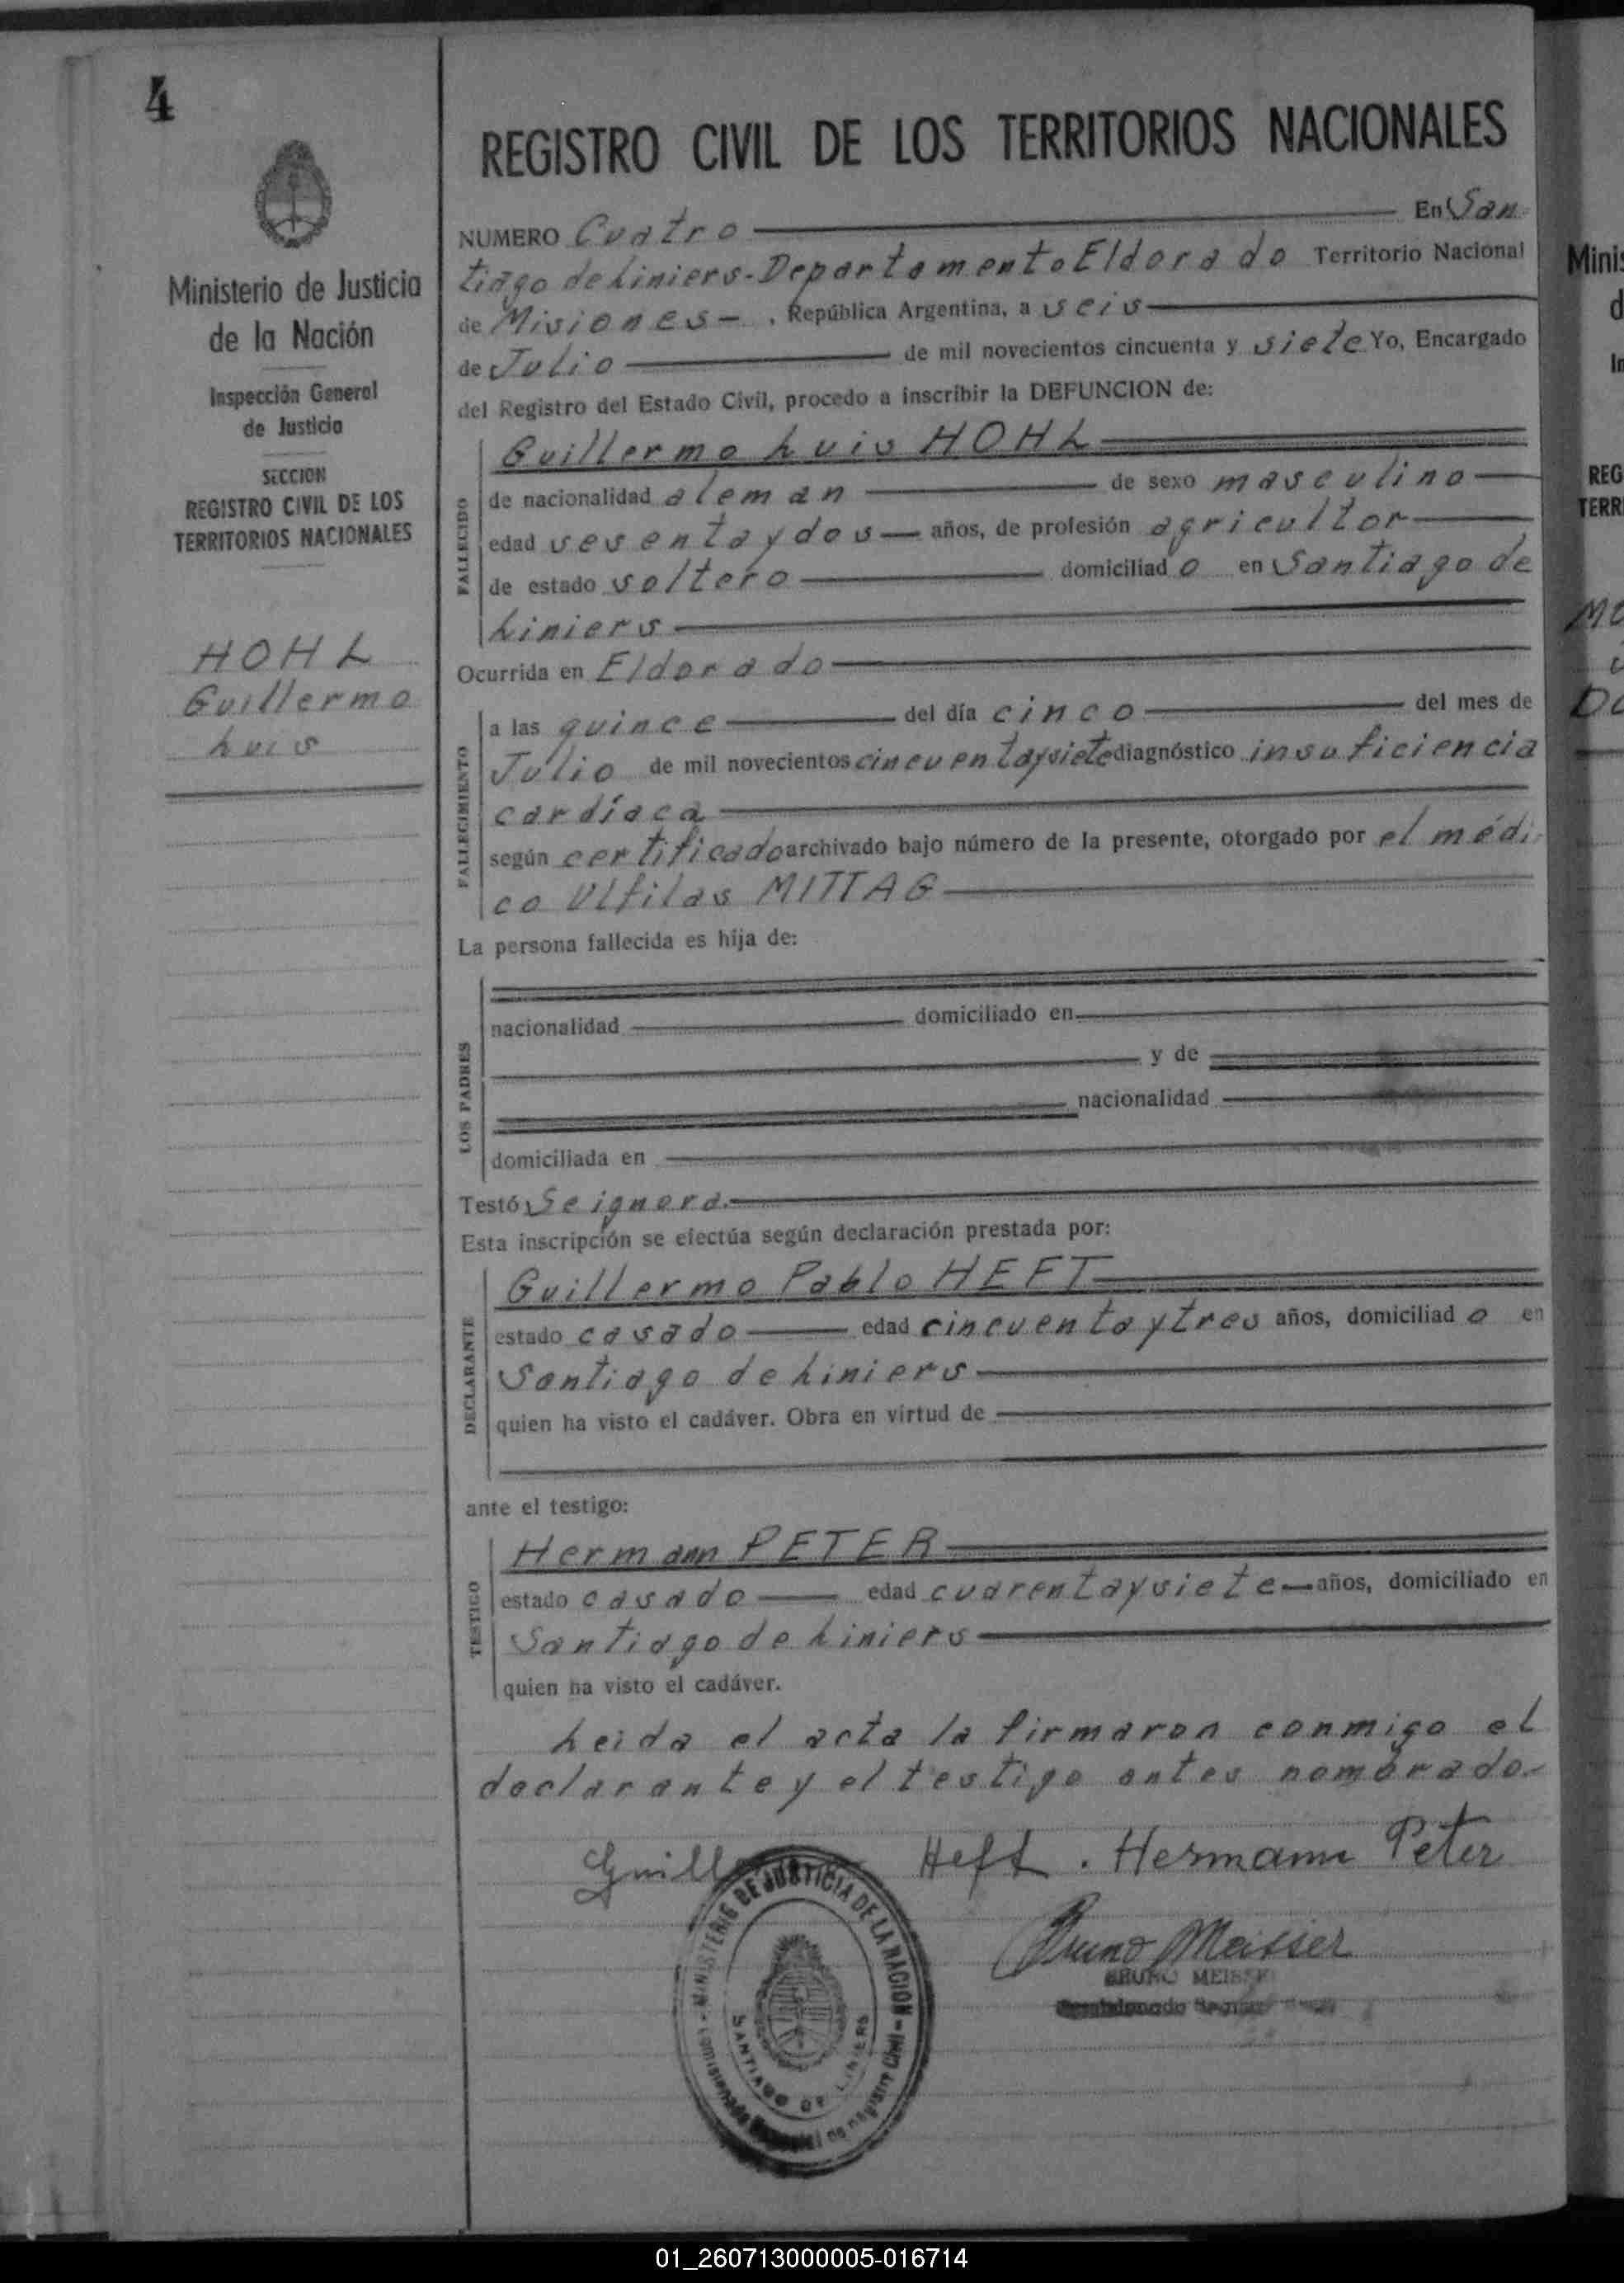 4
Ministerio de Justicia
de la Nación
Inspección General
de Justicia
SECCION
REGISTRO CIVIL DE LOS
TERRITORIOS NACIONALES
HOHL
Guillermo
Luis
REGISTRO CIVIL DE LOS TERRITORIOS NACIONALES
NUMERO Cuatro En San
tiago de Liniers-Departamento Eldorado Territorio Nacional
de Misiones-, República Argentina, a seis
de Julio de mil novecientos cincuenta y siete Yo, Encargado
del Registro del Estado Civil, procedo a inscribir la DEFUNCION de:
Guillermo Luis HOHL
FALLECIDO
de nacionalidad aleman de sexo masculino
edad sesenta y dos años, de profesión agricultor
de estado soltero domiciliado en Santiago de
Liniers
Ocurrida en Eldorado
FALLECIMIENTO
a las quince del día cinco del mes de
Julio de mil novecientos cincuenta y siete diagnóstico insuficiencia
cardíaca
según certificado archivado bajo número de la presente, otorgado por el médi
co Ulfilas MITTAG
La persona fallecida es hija de:
LOS PADRES
nacionalidad domiciliado en
y de
nacionalidad
domiciliada en
Testó Se ignora.
Esta inscripción se efectúa según declaración prestada por:
Guillermo Pablo HEFT
DECLARANTE
estado casado edad cincuenta y tres años, domiciliado en
Santiago de Liniers
quien ha visto el cadáver. Obra en virtud de
ante el testigo:
Hermann PETER
TESTIGO
estado casado edad cuarenta y siete años, domiciliado en
Santiago de Liniers
quien ha visto el cadáver.
Leida el acta la firmaron conmigo el
declarante y el testigo antes nombrado.
Guill Heft. Hermann Peter
Bruno Meisser
BRUNO
MINISTERIO DE JUSTICIA DE LA NACION
SANTIAGO DE LINIERS
Minis
d
In
REG
TERR
01_260713000005-016714